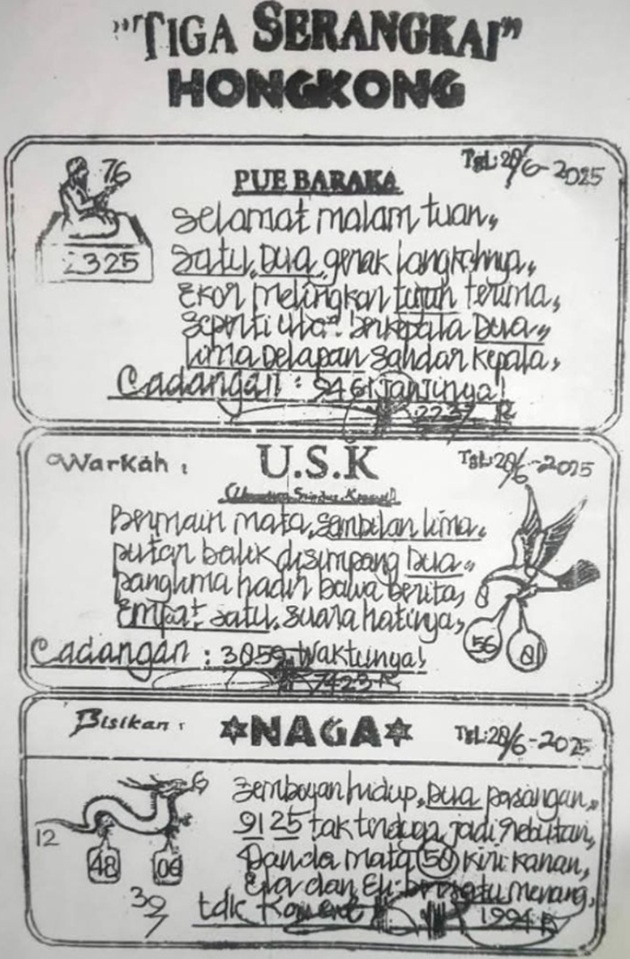 "TIGA SERANGKAI"
HONGKONG
76
2325
PUE BARAKA
TgL: 28/6-2025
Selamat malam tuan,,
Satu, Dua, gerak langkahnya,
Ekor melingkar tujuh terima,
Seperti berkepala Dua,,
Lima Delapan sandar kepala,
Cadangan : 9461 Janjinya!
R
Warkah :
U.S.K
TgL: 28/6-2025
Bermain mata, Sembilan lima,
putar balik disimpang Dua,,
panglima hadir bawa berita,
Empat satu, suara hatinya,
56
Cadangan : 3059 Waktunya!
7423 R
Bisikan :
NAGA
TgL: 28/6-2025
Semboyan hidup, Dua pasangan,,
91 25 tak terduga jadi rebutan,
12
48
Panda mata 50 kiri kanan,
menang,
39/7
tdk
1994 R